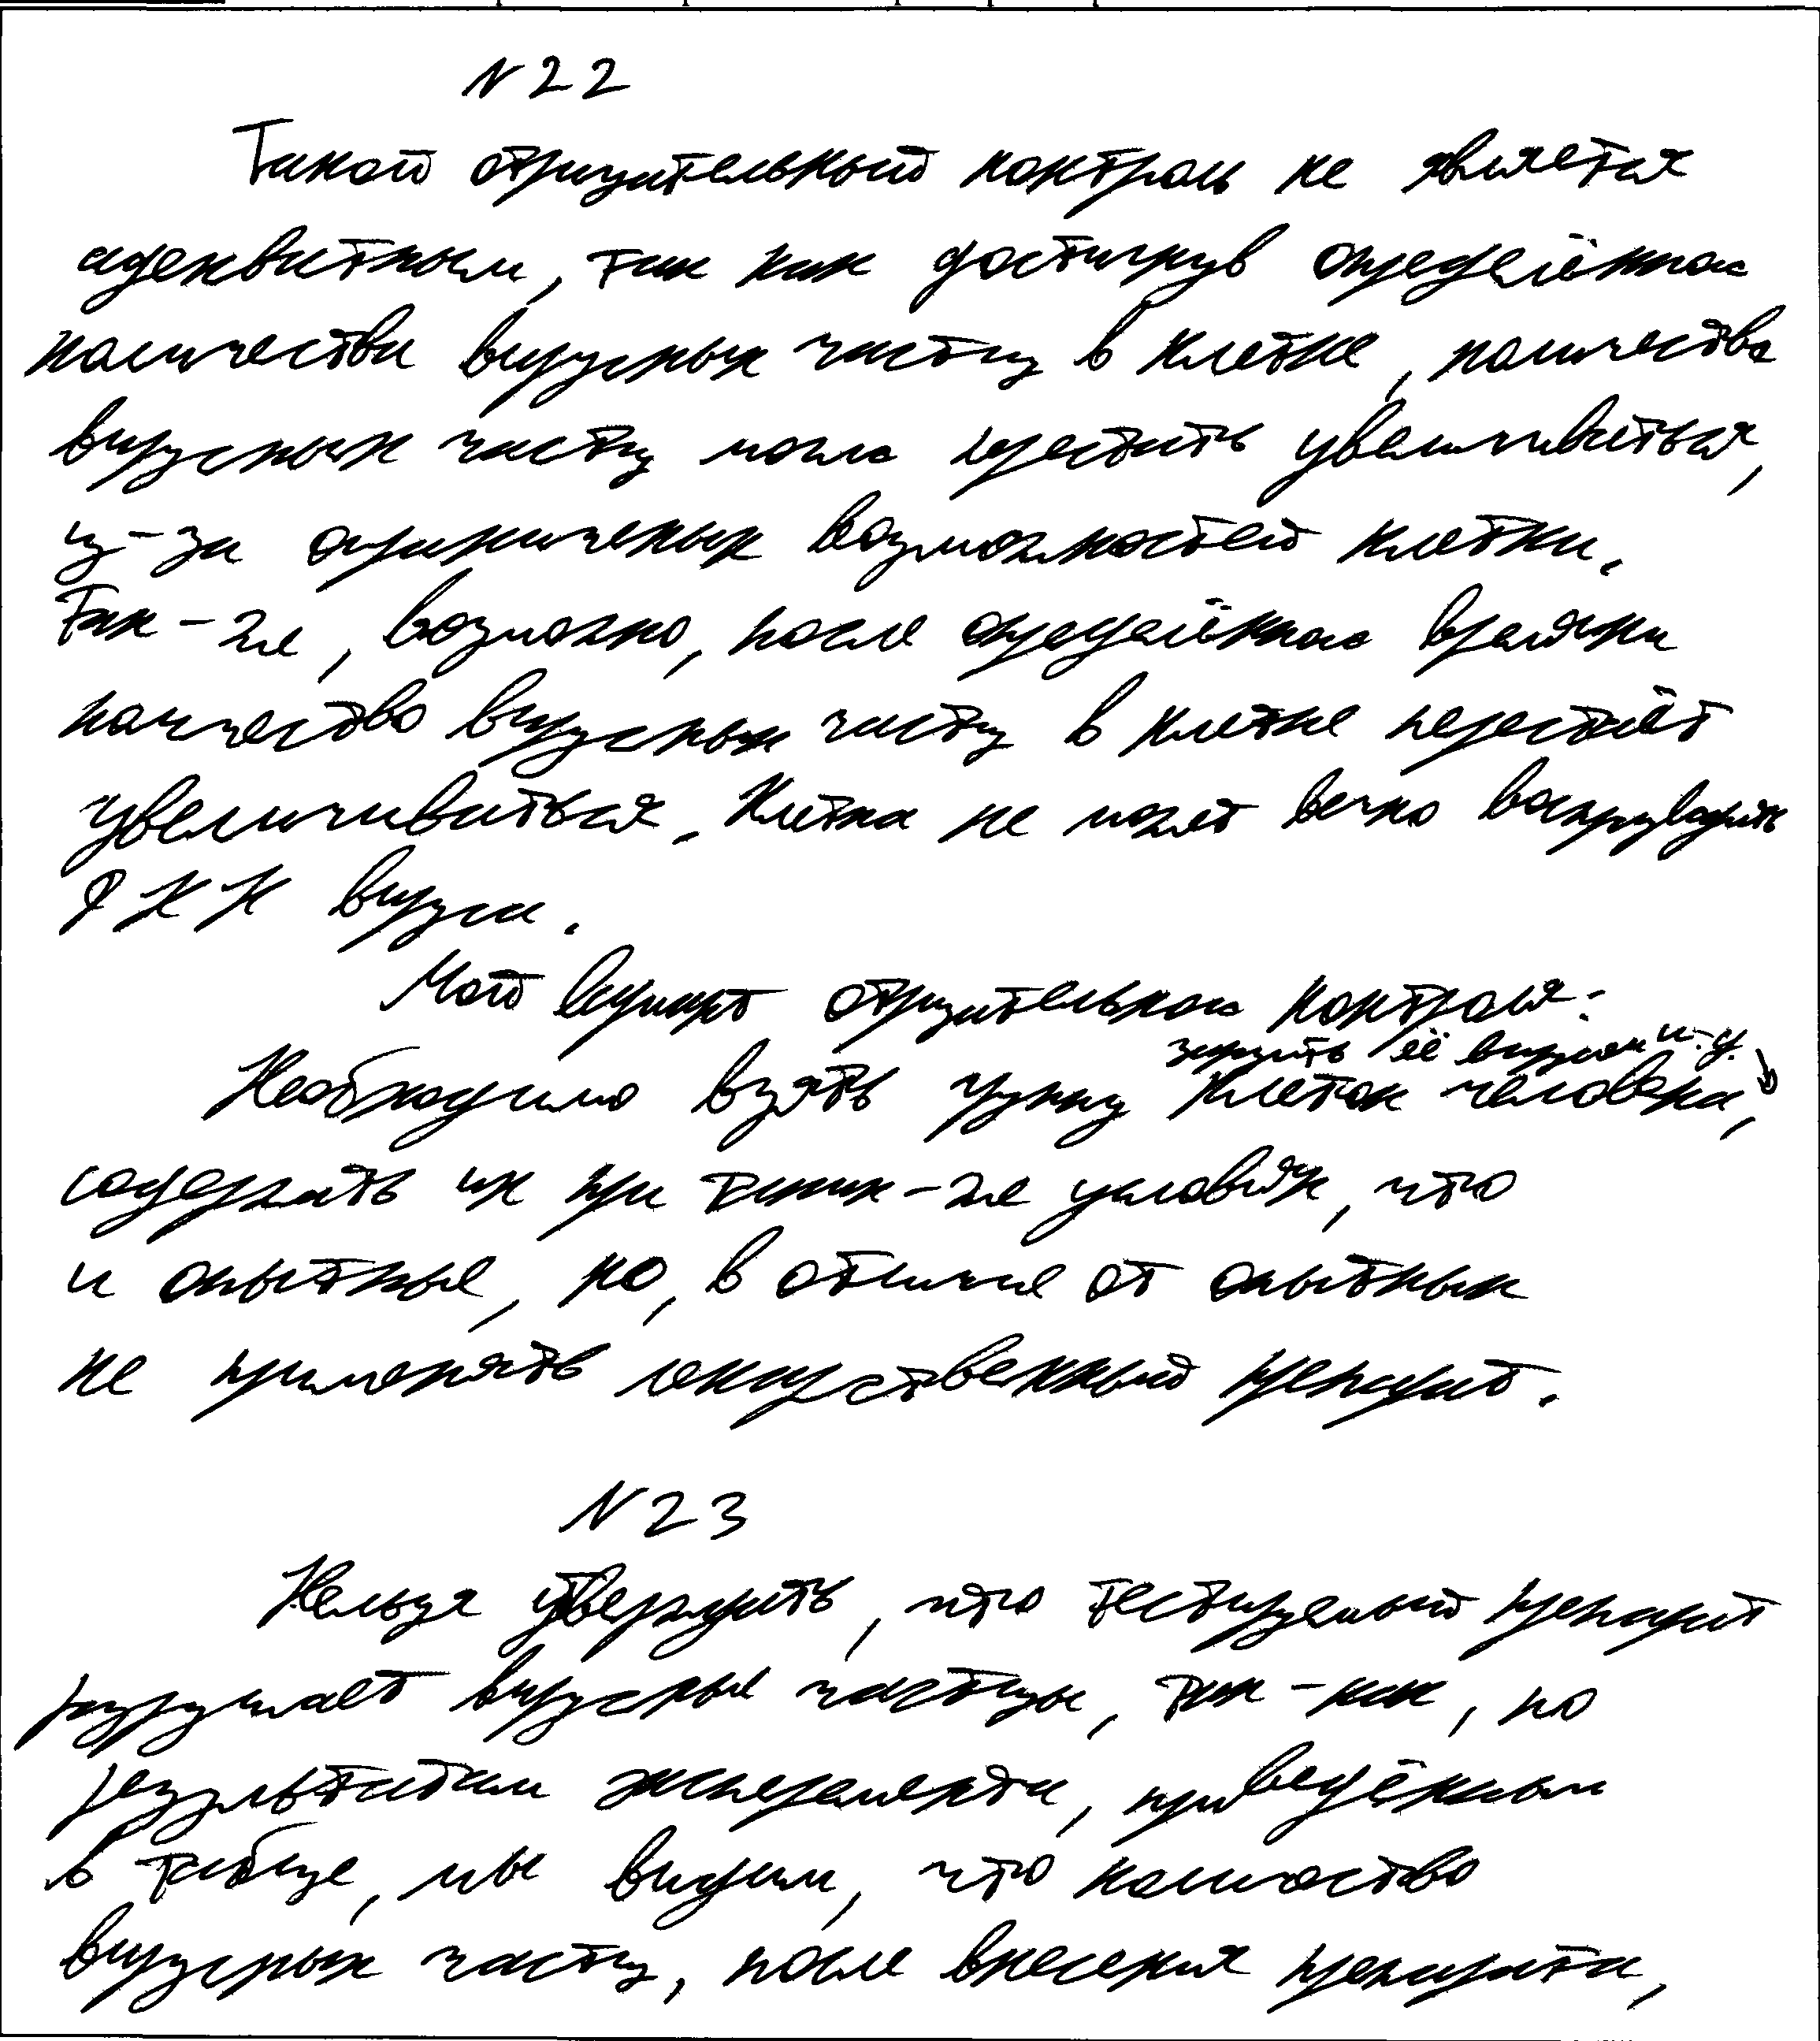 N 22
Такой отрицательный контроль не является
адекватным, так как достигнув определённого
количества вирусных частиц в клетке, количество
вирусных частиц могло перестать увеличиваться,
из-за ограниченых возможностей клетки.
Так-же, возможно, после определённого времяни
количество вирусных частиц в клетке перестаёт
увеличиваться. Клетка не может вечно воспроизводить
РНК вируса.
Мой вариант отрицательного контроля:
заразить её вирусом и.д.
Необходимо взять группу клеток человека,
содержать их при таких-же условиях, что
и опытные, но, в отличие от опытных
не применять лекарственный препарат.
N 23
Нельзя утверждать, что тестируемый препарат
разрушает вирусные частицы, так-как, по
результатам эксперемента, приведённым
в таблице, мы видим, что количество
вирусных частиц, после внесения препарата,